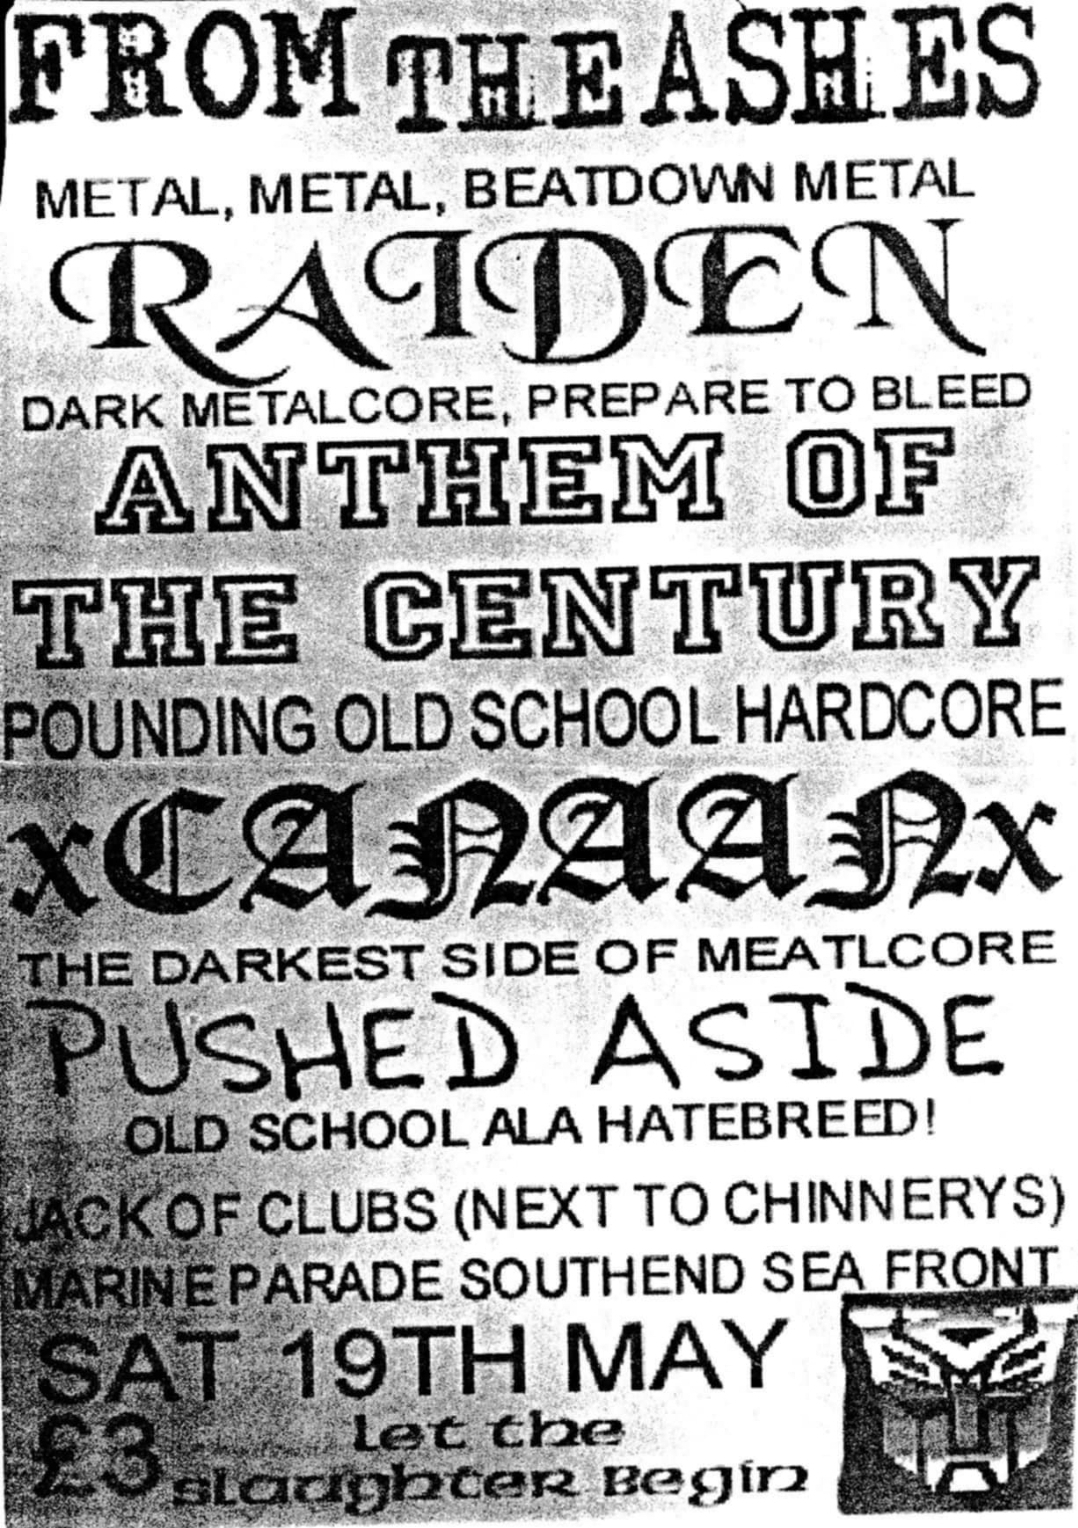 FROM THE ASHES
METAL, METAL, BEATDOWN METAL
RAIDEN
DARK METALCORE, PREPARE TO BLEED
ANTHEM OF
THE CENTURY
POUNDING OLD SCHOOL HARDCORE
xCANAANx
THE DARKEST SIDE OF MEATLCORE
PUSHED ASIDE
OLD SCHOOL ALA HATEBREED!
JACK OF CLUBS (NEXT TO CHINNERYS)
MARINE PARADE SOUTHEND SEA FRONT
SAT 19TH MAY
£3 Let the
slaughter Begin